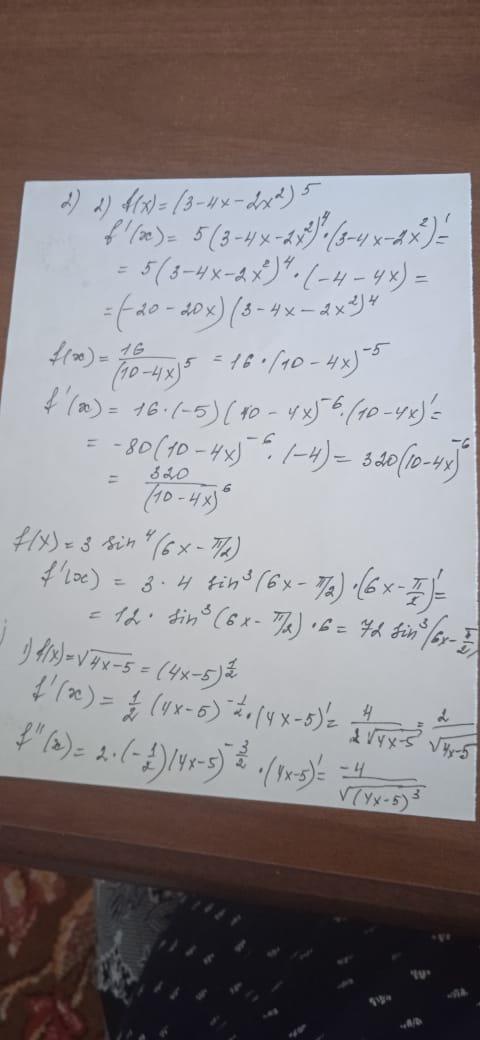 2) 2) f(x) = (3-4x-2x²)⁵
f'(x) = 5(3-4x-2x²)⁴·(3-4x-2x²)'=
= 5(3-4x-2x²)⁴·(-4-4x)=
=(-20-20x)(3-4x-2x²)⁴
f(x) = 16/(10-4x)⁵ = 16·(10-4x)⁻⁵
f'(x) = 16·(-5)(10-4x)⁻⁶·(10-4x)'=
= -80(10-4x)⁻⁶·(-4) = 320(10-4x)⁻⁶
= 320/(10-4x)⁶
f(x) = 3 sin⁴(6x-π/2)
f'(x) = 3·4 sin³(6x-π/2)·(6x-π/2)'=
= 12· sin³(6x-π/2)·6 = 72 sin³(6x-π/2)
1) f(x)=√(4x-5) = (4x-5)^(1/2)
f'(x) = 1/2 (4x-5)^(-1/2)·(4x-5)'= 4/(2√(4x-5)) = 2/√(4x-5)
f''(x) = 2·(-1/2)(4x-5)^(-3/2)·(4x-5)'= -4/√((4x-5)³)